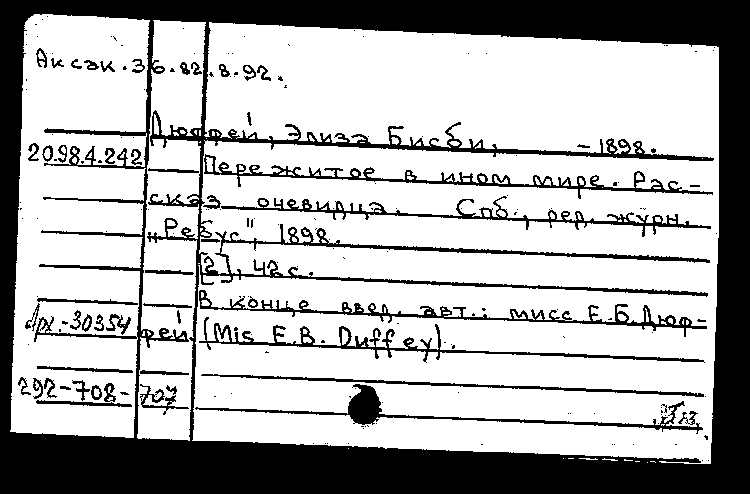 Аксак. 36.82.8.92.
Дюффей, Элиза Бисби, – 1898.
20.98.4.242 Пережитое в ином мире. Рас-
сказ очевидца. Спб., ред. журн.
„Ребус", 1898.
[2], 42 с.
В конце введ. авт.: мисс Е.Б. Дюф-
Арх.-30354 фей (Mis E.B. Duffey).
292-708-707